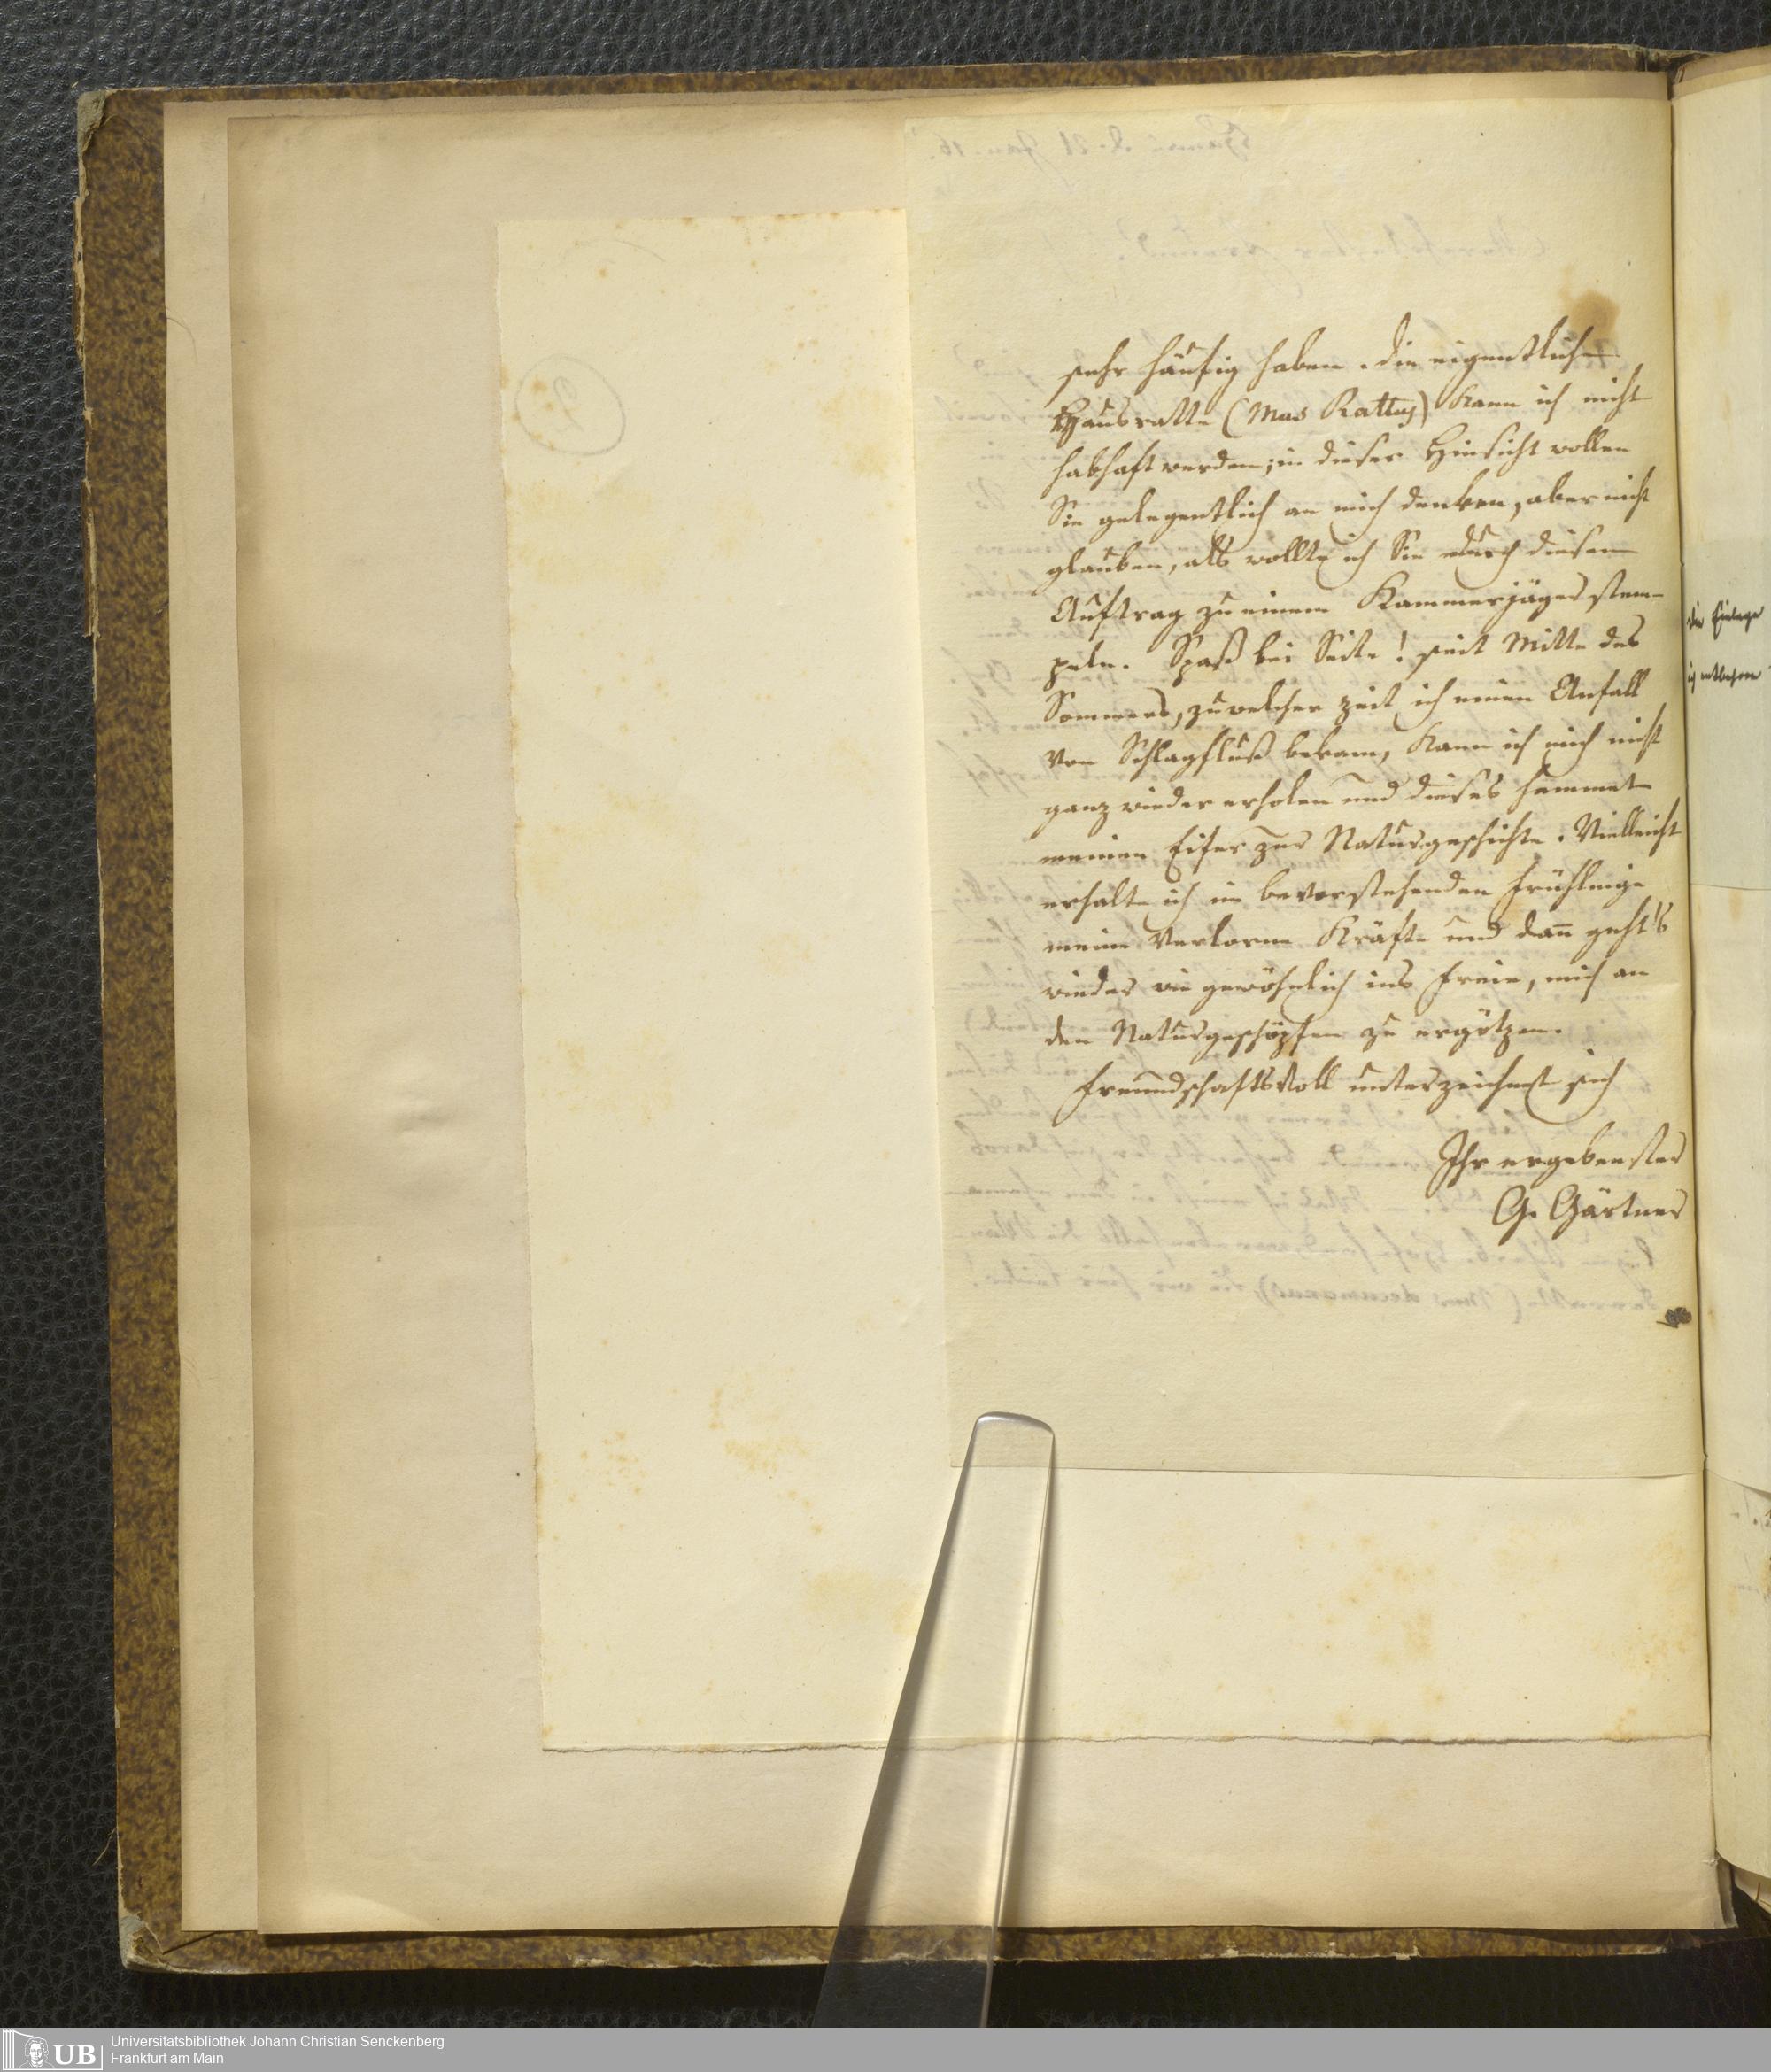 sehr häufig haben. Die eigentliche
Hausratte (Mus Rattus) kann ich nicht
habhaft werden; in dieser Hinsicht wollen
Sie gelegentlich an mich denken, aber nicht
glauben, als wollte ich Sie durch diesen
Auftrag zu einem Kammerjäger stem-
peln. Spaß bei Seite! seit Mitte des
Sommers, zu welcher Zeit ich einen Anfall
von Schlagfluß bekam, kann ich mich nicht
ganz wieder erholen und dieses hemmet
meinen Eifer zur Naturgeschichte. Vielleicht
erhalte ich im bevorstehenden Frühlinge
meine verlorne Kräfte und dañ geht's
wieder wie gewöhnlich ins Freie, mich an
den Naturgeschöpfen zu ergötzen.
Freundschaftsvoll unterzeichnet sich
Ihr ergebenster
G. Gärtner
2
die Einlage
UB
Universitätsbibliothek Johann Christian Senckenberg
Frankfurt am Main